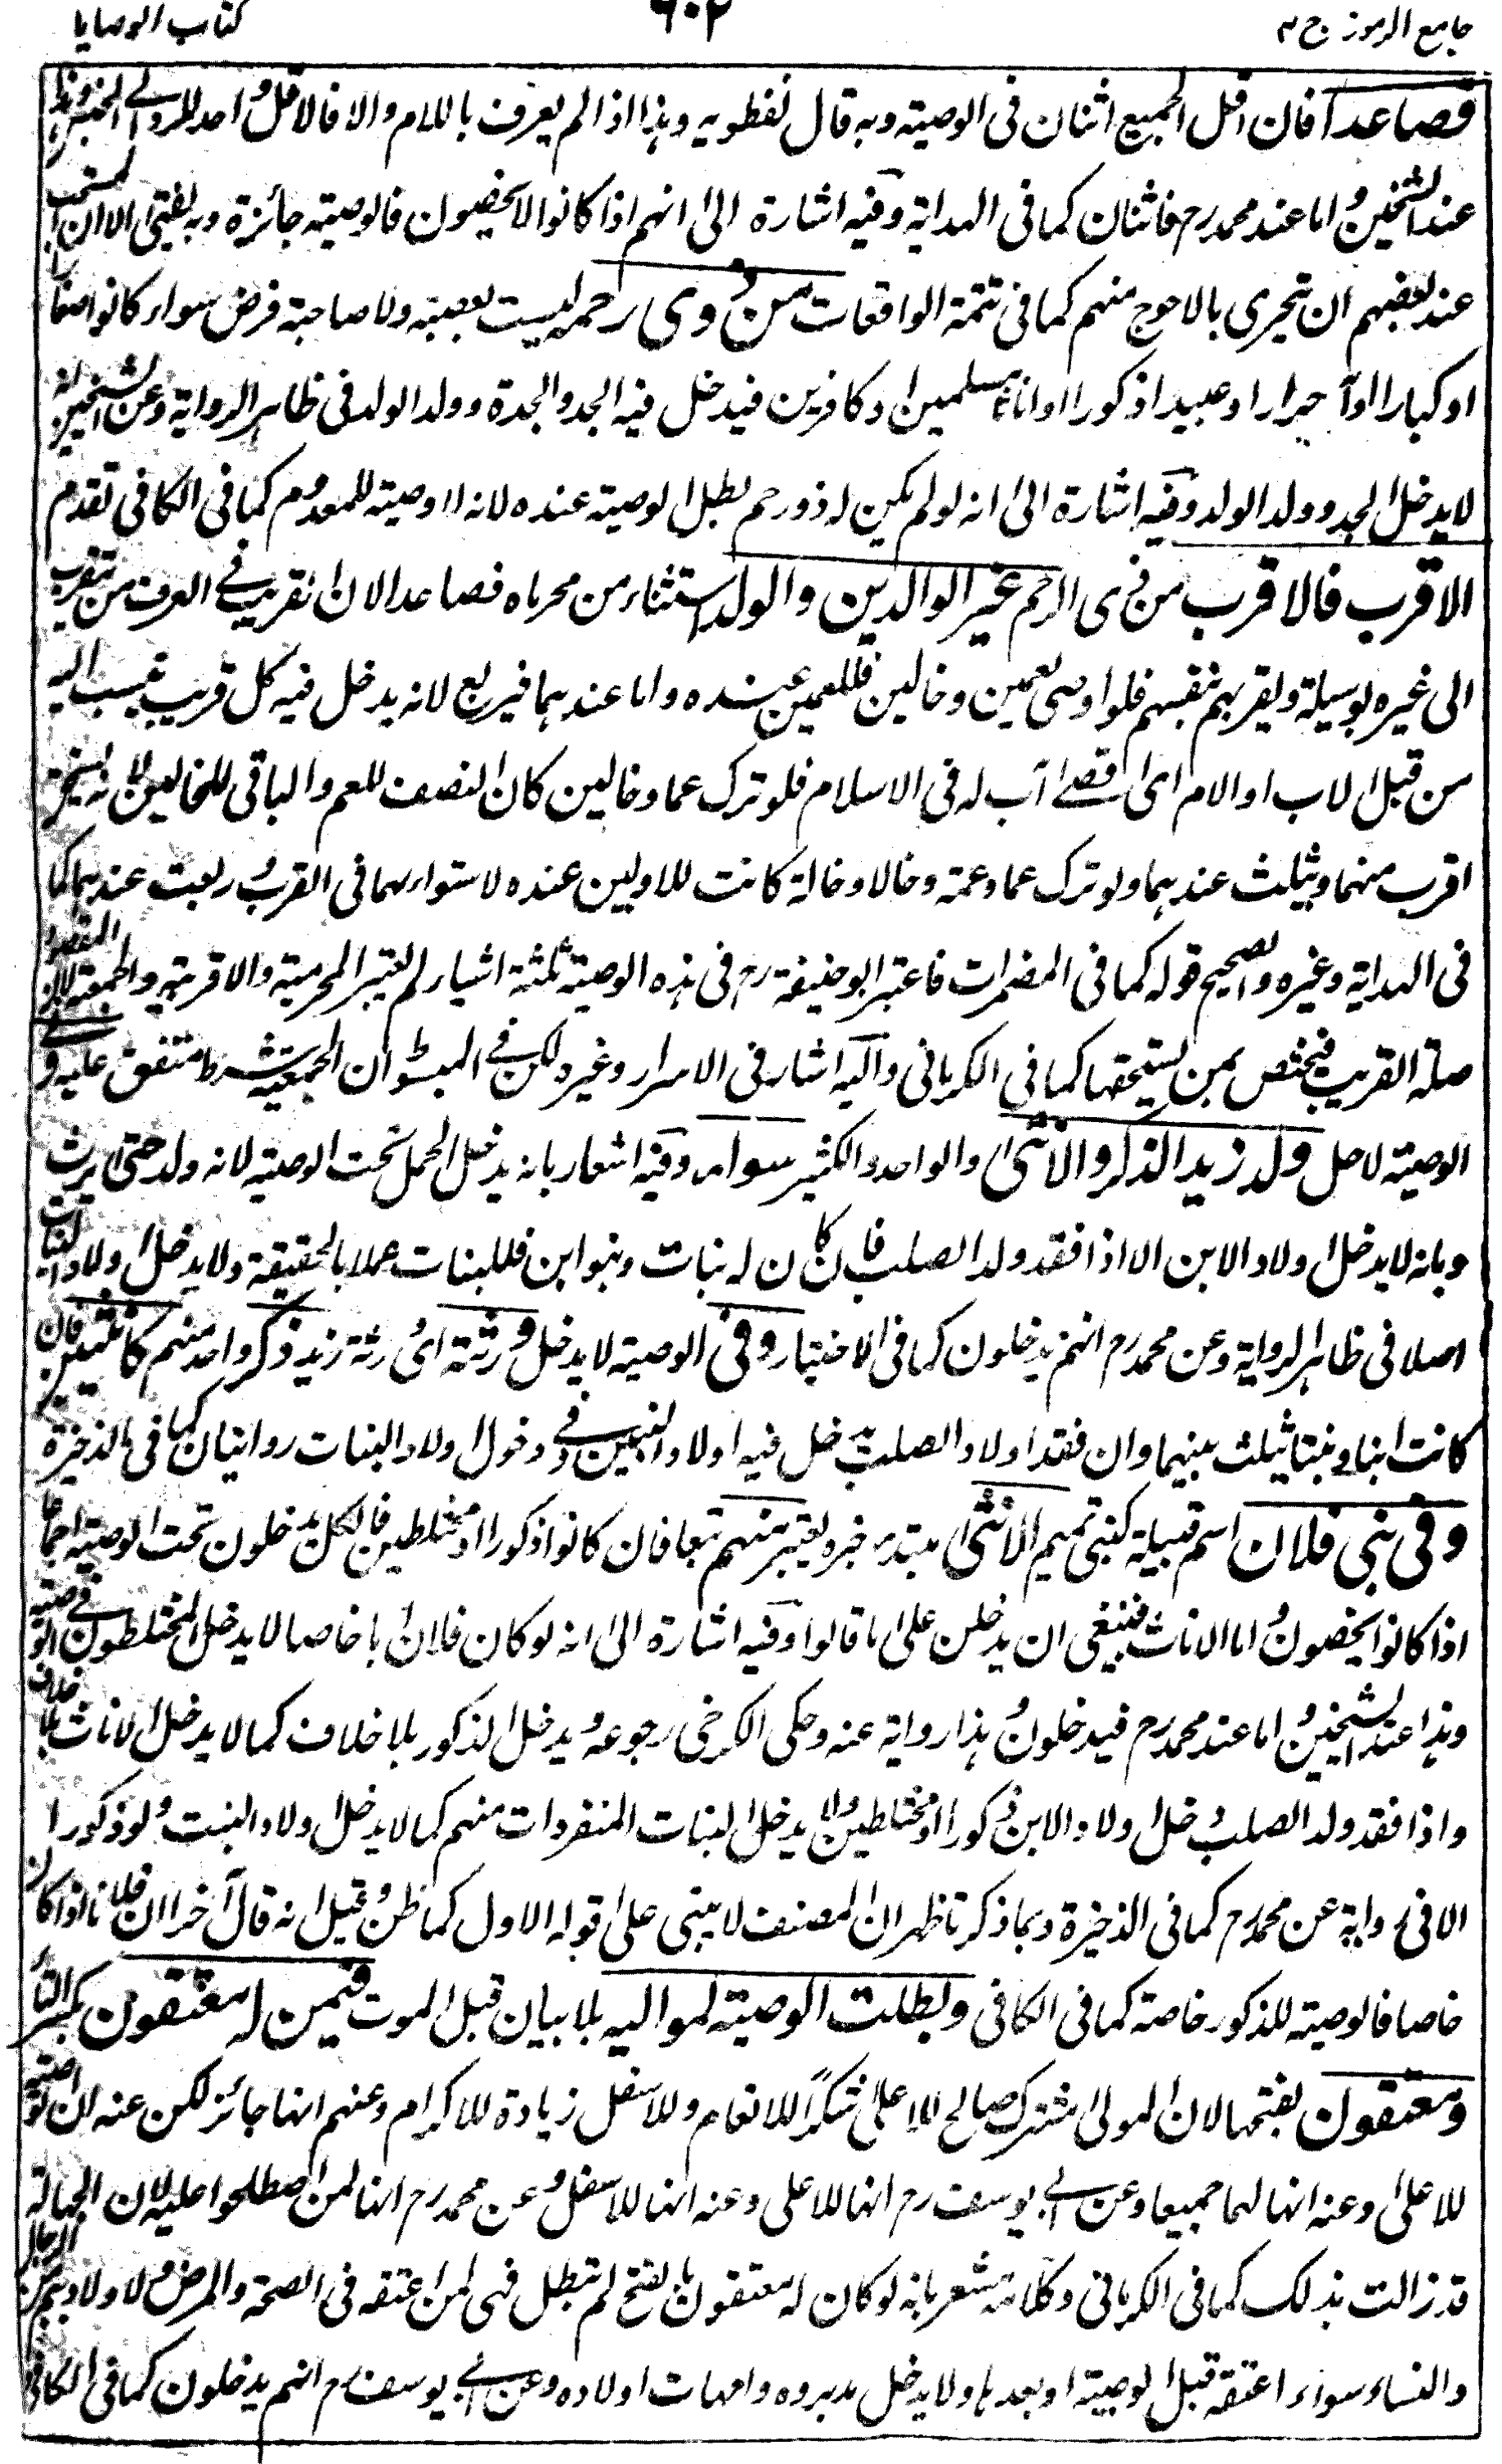 جامع الرموز ج ٢
٦٠٢
كتاب الوصايا
فصاعدا فان اقل الجميع اثنان فى الوصية وبه قال نفطويه وهذا اذا لم يعرف باللام والا فالاقل واحد
عند الشيخين واما عند محمد رح فاثنان كما فى الهداية وفيه اشارة الى انهم اذا كانوا لا يحصون فالوصية جائزة وبه يفتى الا ان المستحب
عند بعضهم ان تجرى بالاحوج منهم كما فى تتمة الواقعات من ذوى رحمه ليست بعصبة ولا صاحبة فرض سواء كانوا صغارا
او كبارا او احرارا او عبيدا ذكورا او اناثا مسلمين او كافرين فيدخل فيه الجد والجدة وولد الولد فى ظاهر الرواية وعن الشيخين انه
لا يدخل الجد وولد الولد وفيه اشارة الى انه لو لم يكن له ذو رحم بطل الوصية عنده لانها وصية للمعدوم كما فى الكافى تقدم
الاقرب فالاقرب من ذى الرحم غير الوالدين والولد استثناء من محرماه فصاعدا لان القريب فى العرف من يتقرب
الى غيره بوسيلة ويقربهم بنفسهم فلو اوصى لعمين وخالين فللعمين عنده واما عندهما فيربع لانه يدخل فيه كل قريب ينسب اليه
من قبل الاب او الام الى اقصى اب له فى الاسلام فلو ترك عما وخالين كان النصف للعم والباقى للخالين لانه
اقرب منهما ويثلث عندهما ولو ترك عما وعمة وخالا وخالة كانت للاولين عنده لاستوائهما فى القرب وربعت عندهما كما
فى الهداية وغيره والصحيح قوله كما فى المضمرات فاعتبر ابو حنيفة رح فى هذه الوصية ثلثة اشياء لم يعتبر المحرمية والاقربية والجمعية لان المقصود
صلة القريب فيختص بمن يستحقها كما فى الكرمانى واليه اشار فى الاسرار وغيره لكن فى المبسوط ان الجمعية شرط متفق عليه وفى
الوصية لاجل ولد زيد الذكر والانثى والواحد والكثير سواء وفيه اشعار بانه يدخل الحمل تحت الوصية لانه ولد حتى يرث
وبانه لا يدخل اولاد الابن الا اذا فقد ولد الصلب فان كان له بنات وبنو ابن فللبنات عملا بالحقيقة ولا يدخل اولاد البنات
اصلا فى ظاهر الرواية وعن محمد رح انهم يدخلون كما فى الاختيار وفى الوصية لا يدخل ورثته اى ورثة زيد ذكر واحد منهم كانثيين فان
كانت ابنا وبنتا يثلث بينهما وان فقد اولاد الصلب يدخل فيه اولاد البنين وفى دخول اولاد البنات روايتان كما فى الذخيرة
وفى بنى فلان اسم قبيلة كبنى تميم الانثى مبتدء خبره يعتبر منهم تبعا فان كانوا ذكورا او مختلطين فالكل يدخلون تحت الوصية اجماعا
اذا كانوا يحصون واما الاناث فينبغى ان يدخلن على ما قالوا وفيه اشارة الى انه لو كان فلان ابا خاصا لا يدخل المختلطون فى الوصية
وهذا عند الشيخين واما عند محمد رح فيدخلون وهذا رواية عنه وحكى الكرخى رجوعه ويدخل الذكور بلا خلاف كما لا يدخل الاناث بلا خلاف
واذا فقد ولد الصلب دخل اولاد الابن ذكورا او مختلطين ولا يدخل البنات المنفردات منهم كما لا يدخل اولاد البنت ولو ذكورا
الا فى رواية عن محمد رح كما فى الذخيرة وبما ذكرنا ظهر ان المصنف لا يبنى على قوله الاول كما ظن وقيل انه قال آخرا ان فلانا اذا كان
خاصا فالوصية للذكور خاصة كما فى الكافى وبطلت الوصية لمواليه بلا بيان قبل الموت فيمن له معتقون بكسر التاء
ومعتقون بفتحها لان المولى مشترك صالح للاعلى شكرا للانعام وللاسفل زيادة للاكرام وعنهم انها جائز لكن عنه ان الوصية
للاعلى وعنه انها لهما جميعا وعن ابى يوسف رح انها للاعلى وعنه انها للاسفل وعن محمد رح انها لمن اصطلحوا عليه لان الجهالة
قد زالت بذلك كما فى الكرمانى وكلامه مشعر بانه لو كان له معتقون بالفتح لم تبطل فهى لمن اعتقه فى الصحة والمرض ولاولادهم من الرجال
والنساء سواء اعتقه قبل الوصية او بعدها ولا يدخل مدبروه وامهات اولاده وعن ابى يوسف رح انهم يدخلون كما فى الكافى